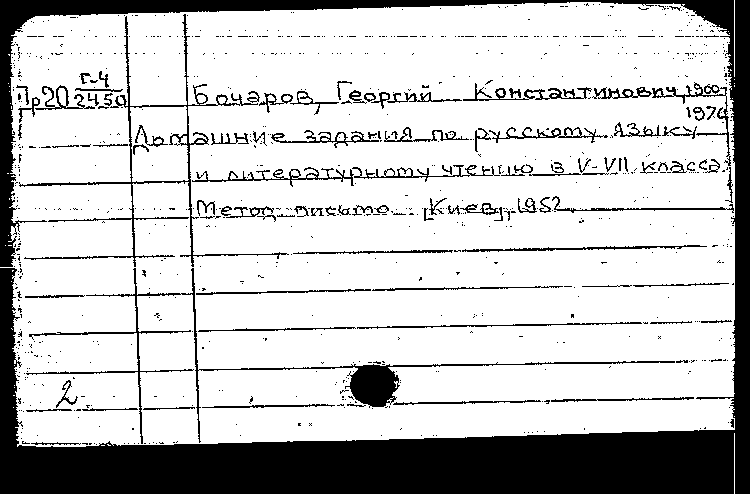 Пр20 Г-4/2450 Бочаров, Георгий Константинович, 1900-
1970
Домашние задания по русскому языку
и литературному чтению в V-VII класса
Метод. письмо. [Киев], 1952.
2